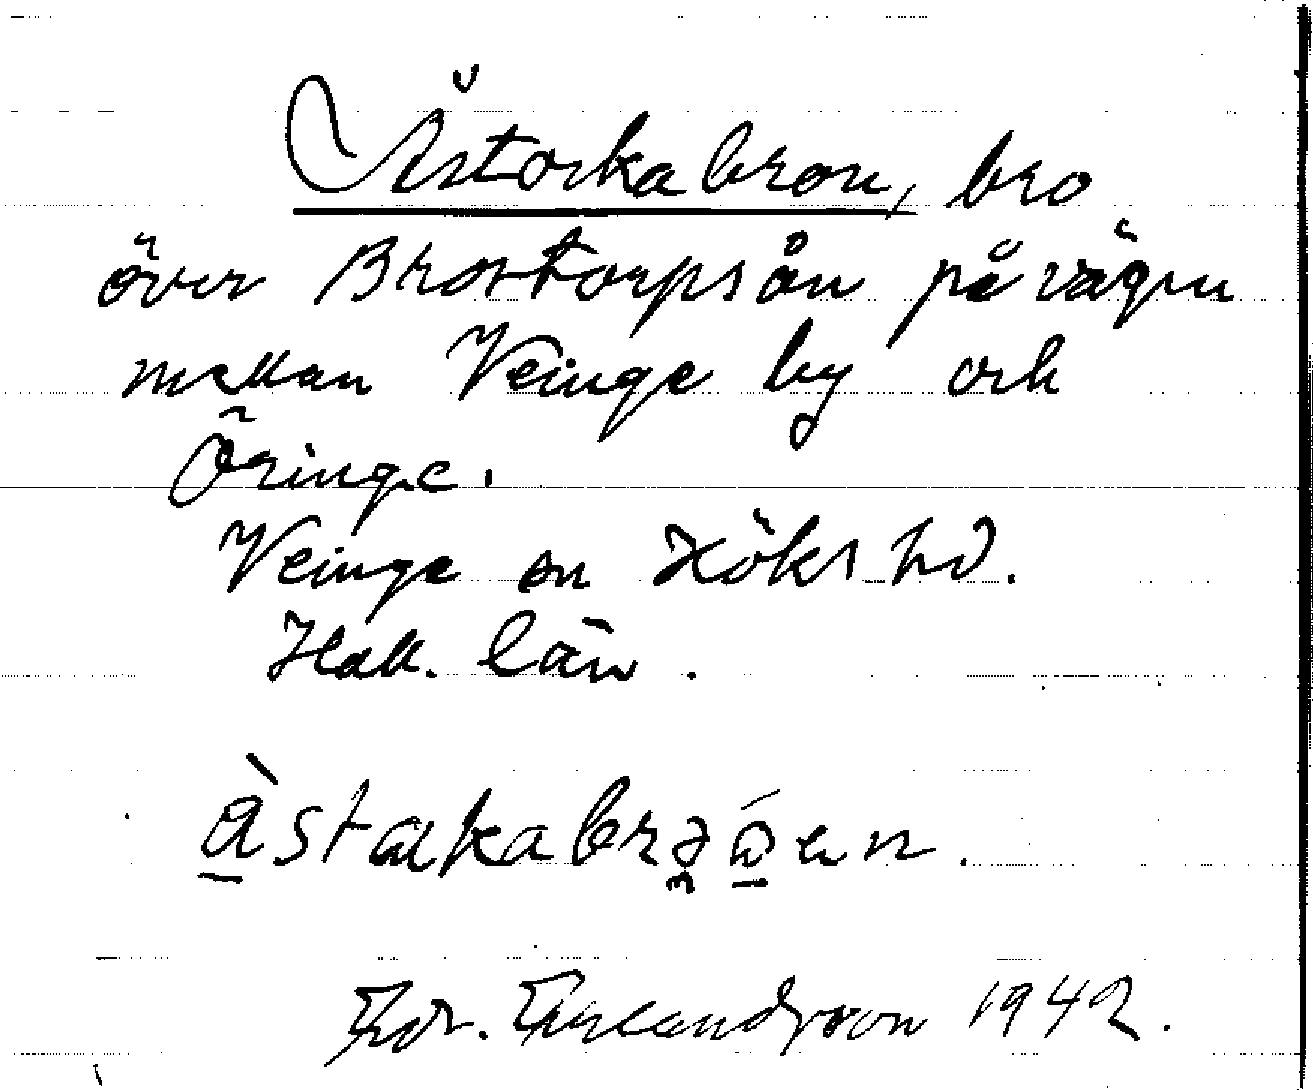 Åstorkabron, bro
över Brostorpsån på vägen
mellan Veinge by och
Öringe.
Veinge sn Höks hd.
Hall. län.
Edv. Erlandsson 1942.